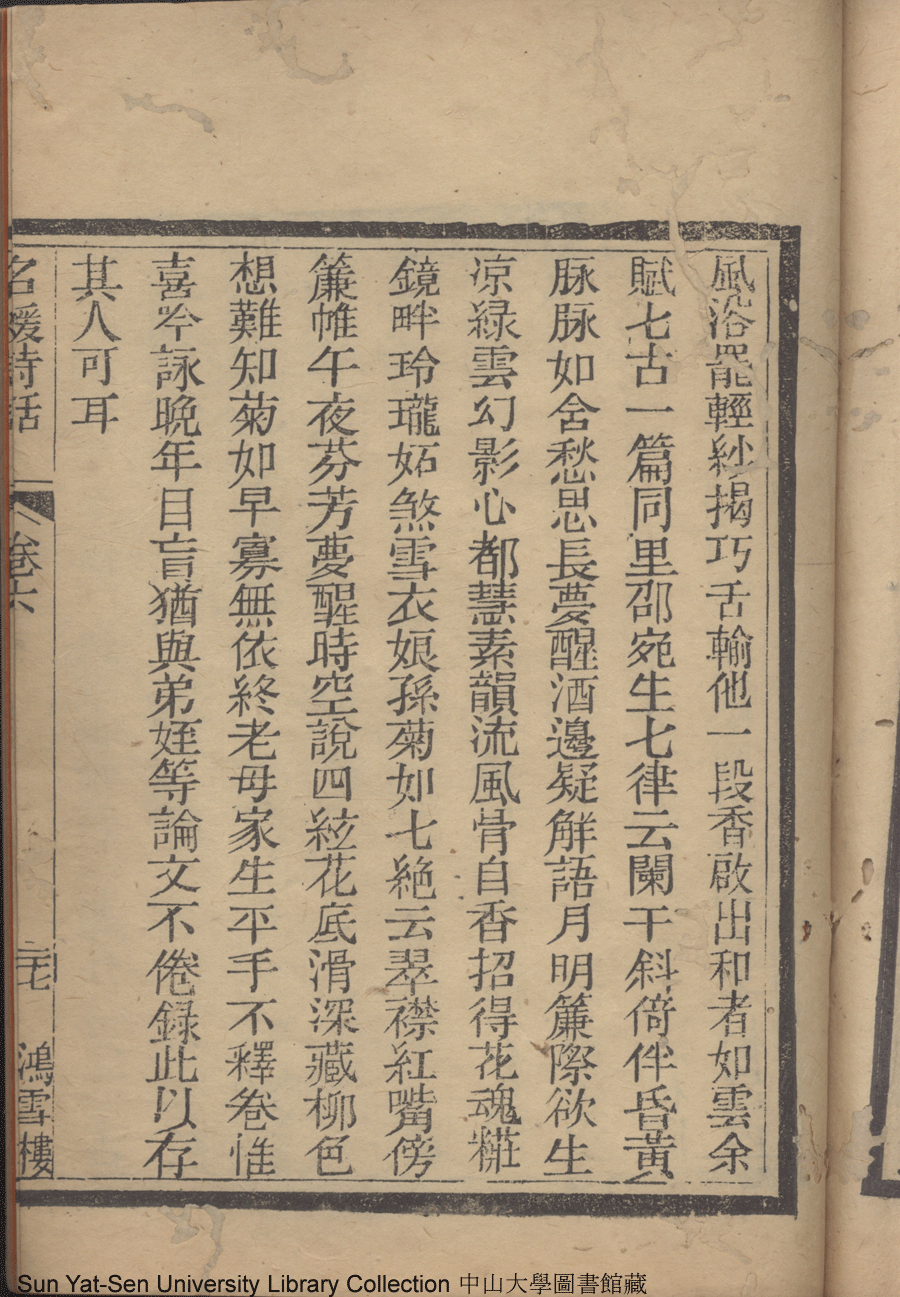 風浴罷輕紗揭巧舌輸他一段香啟出和者如雲余
賦七古一篇同里邵宛生七律云闌干斜倚伴昏黃
脉脉如含愁思長夢醒酒邊疑解語月明簾際欲生
凉綠雲幻影心都慧素韻流風骨自香招得花魂糚
鏡畔玲瓏妬煞雪衣娘孫菊如七絶云翠襟紅嘴傍
簾帷午夜芬芳夢醒時空說四絃花底滑深藏柳色
想難知菊如早寡無依終老母家生平手不釋卷惟
喜吟詠晚年目盲猶與弟姪等論文不倦録此以存
其人可耳
名媛詩話 卷六 二七 鴻雪樓
Sun Yat-Sen University Library Collection 中山大學圖書館藏